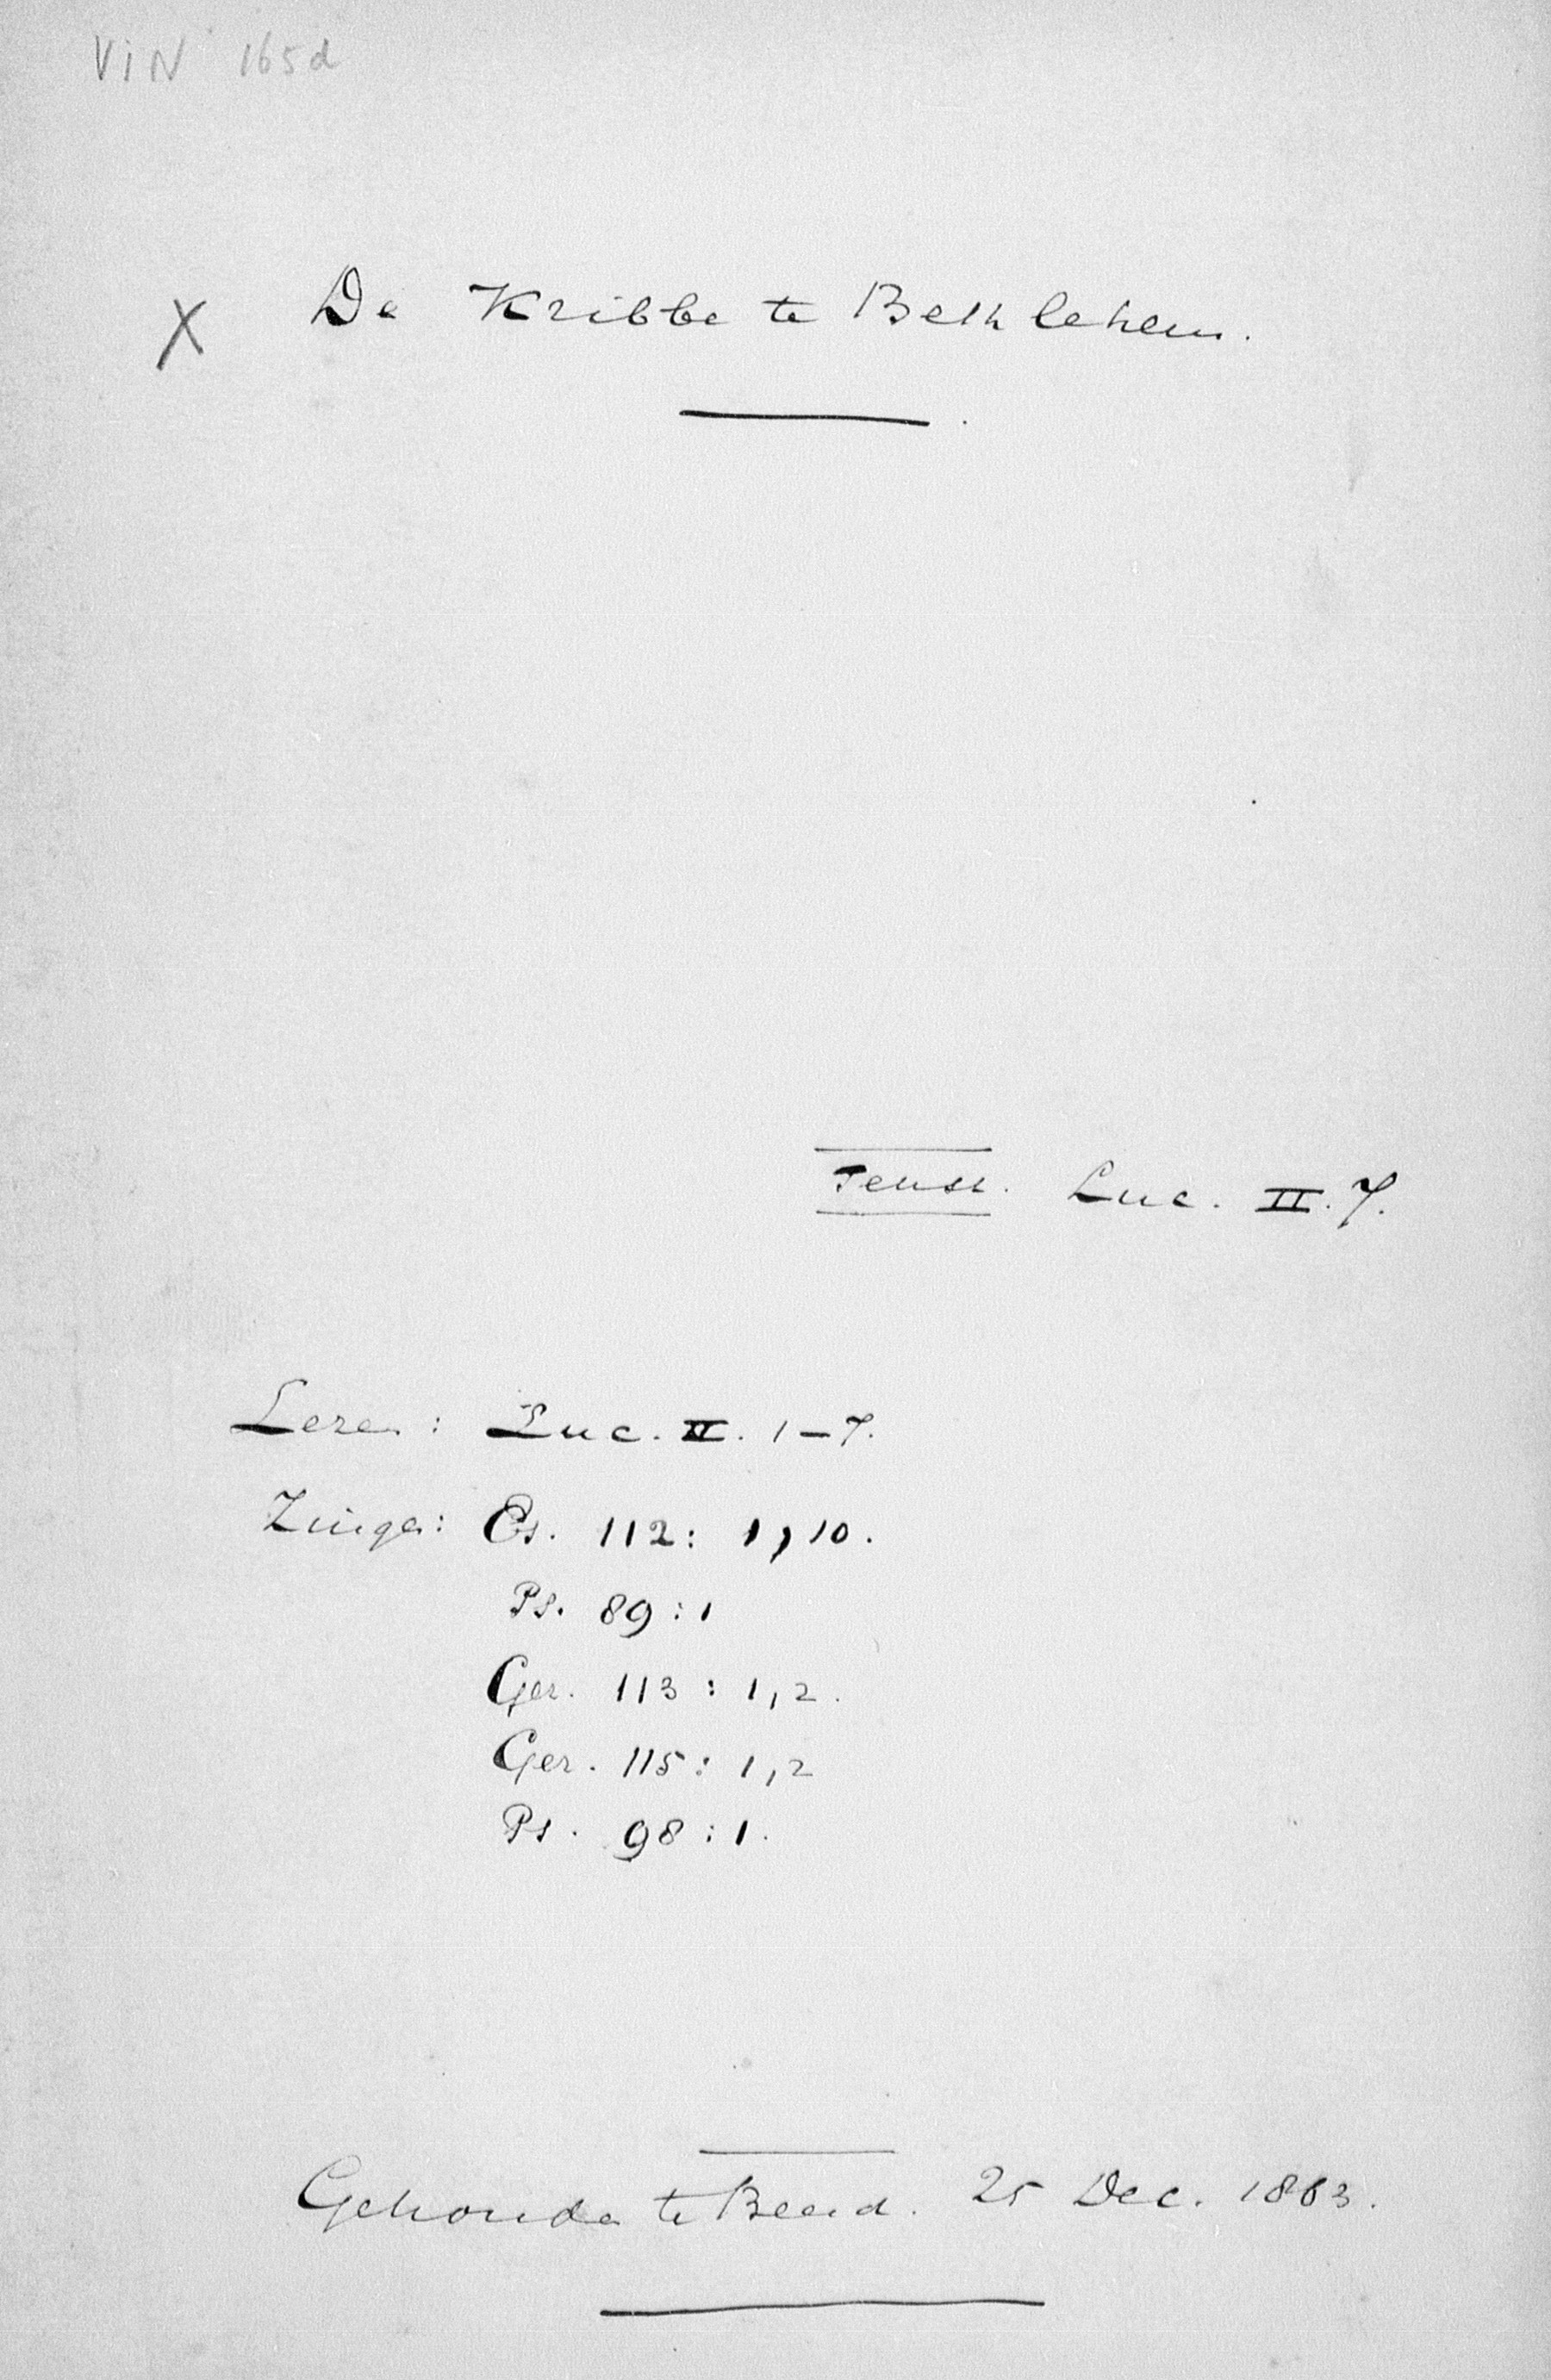 VIN 165d
X De Kribbe te Bethlehem.
Tekst. Luc. II. 7.
Lezen: Luc. II. 1-7.
Zingen: Gs. 112: 1, 10.
Ps. 89:1
Gez. 113: 1,2.
Gez. 115: 1,2
Ps. 98:1.
Gehouden te Beesd. 25 Dec. 1863.